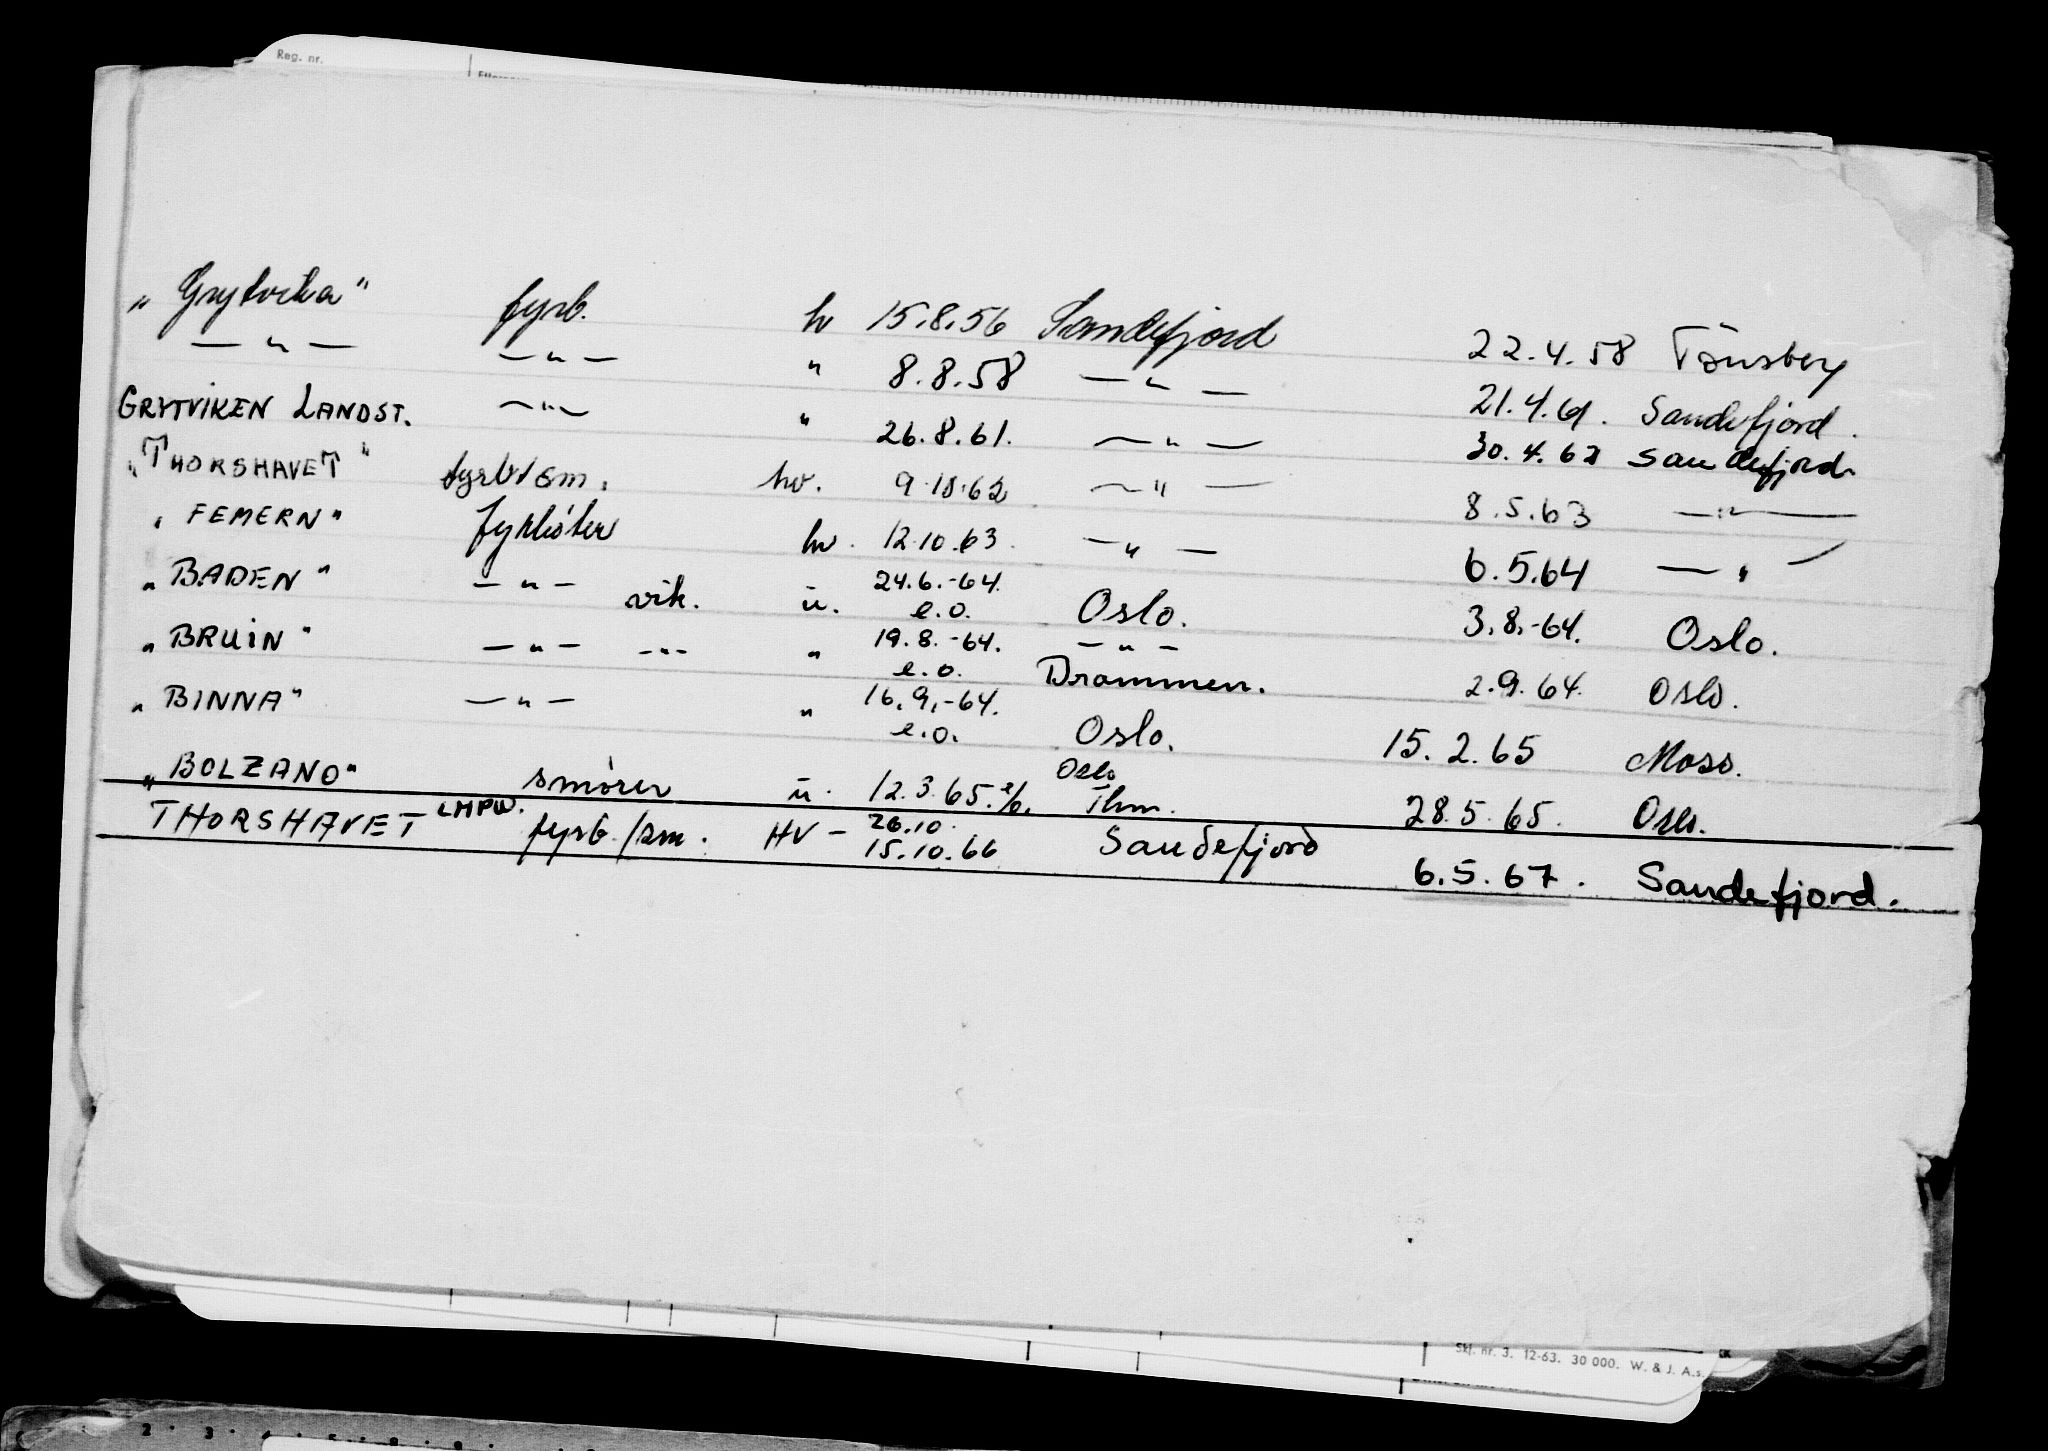 Reg. nr.
„ Grytvika " fyrb. hv 15.8.56 Sandefjord 22.4.58 Tönsberg
— " — — " — " 8.8.58 — " — 21.4.61. Sandefjord.
GRYTVIKEN LANDST. — " — " 26.8.61. — " — 30.4.62 Sandefjord.
„ THORSHAVET " fyrb/sm. hv. 9.10.62 — " — 8.5.63 — " —
„ FEMERN " fyrbøter hv. 12.10.63. — " — 6.5.64 — " —
„ BADEN " — " — vik. u. 24.6.-64. e.o. Oslo. 3.8.-64. Oslo.
„ BRUIN " — " — - " - " 19.8.-64. e.o. — " — Drammen. 2.9.64. Oslo.
„ BINNA " — " — " 16.9.-64. e.o. Oslo. 15.2.65 Moss.
„ BOLZANO " smører u. 12.3.65. e/o. Oslo Thm. 28.5.65. Oslo.
THORSHAVET LMPW. fyrb./sm. HV - 26.10. 15.10.66 Sandefjord 6.5.67. Sandefjord.
Skj. nr. 3. 12-63. 30 000. W. & J. A.s.